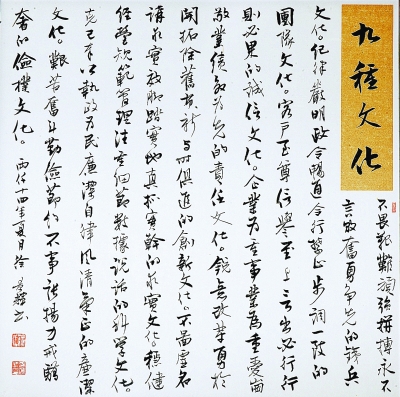 九種文化
不畏艱難頑強拼搏永不
言敗奮勇爭先的鐵兵
文化。紀律嚴明政令暢通令行禁止步調一致的
團隊文化。客戶至尊信譽至上言出必行行
則必果的誠信文化。企業為重事業為重愛崗
敬業績效為先的責任文化。銳意改革勇於
開拓除舊布新與時俱進的創新文化。不圖虛名
講求實效腳踏實地真抓實幹的求實文化。穩健
經營規範管理注重細節數據說話的科學文化。
克己奉公執政為民廉潔自律風清氣正的廉潔
文化。艱苦奮鬥勤儉節約不事張揚力戒
奢的儉樸文化。十四年夏月徐書